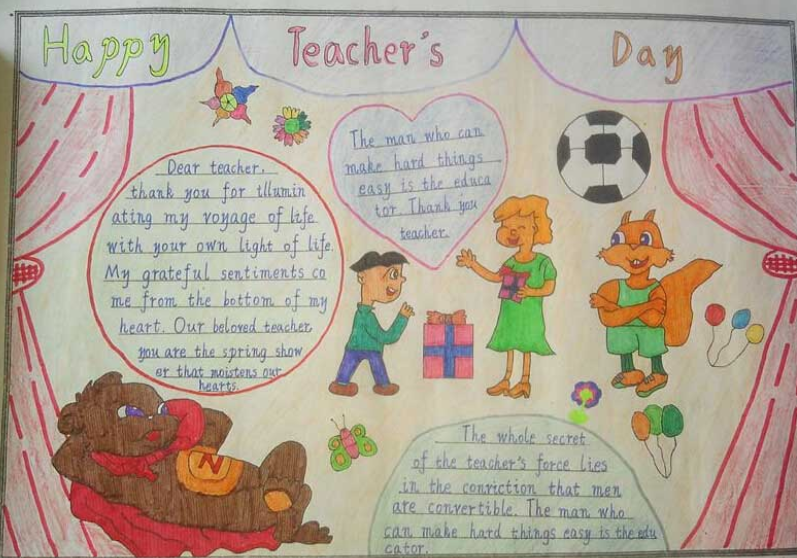 Happy Teacher's Day
Dear teacher,
thank you for tllumin
ating my voyage of life
with your own light of life.
My grateful sentiments co
me from the bottom of my
heart. Our beloved teacher,
you are the spring show
er that moistens our
hearts.
The man who can
make hard things
easy is the educa
tor. Thank you
teacher.
N
The whole secret
of the teacher's force lies
in the conviction that men
are convertible. The man who
can make hard things easy is the edu
cator.